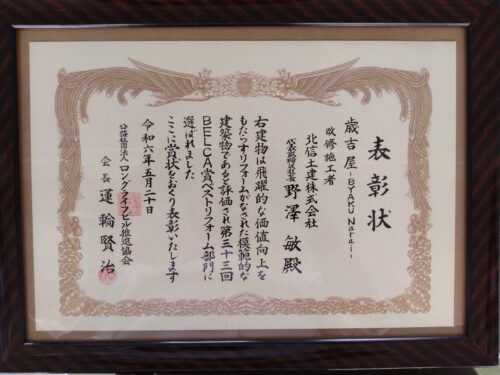 表彰状
歳吉屋-BYAKU Narai-
改修施工者
北信土建株式会社
代表取締役社長 野澤 敏殿
右建物は飛躍的な価値向上を
もたらすリフォームがなされた模範的な
建築物であると評価され第三十三回
BELCA賞ベストリフォーム部門に
選ばれました
ここに賞状をおくり表彰いたします
令和六年五月二十日
公益社団法人ロングライフビル推進協会
会長 蓮輪賢治